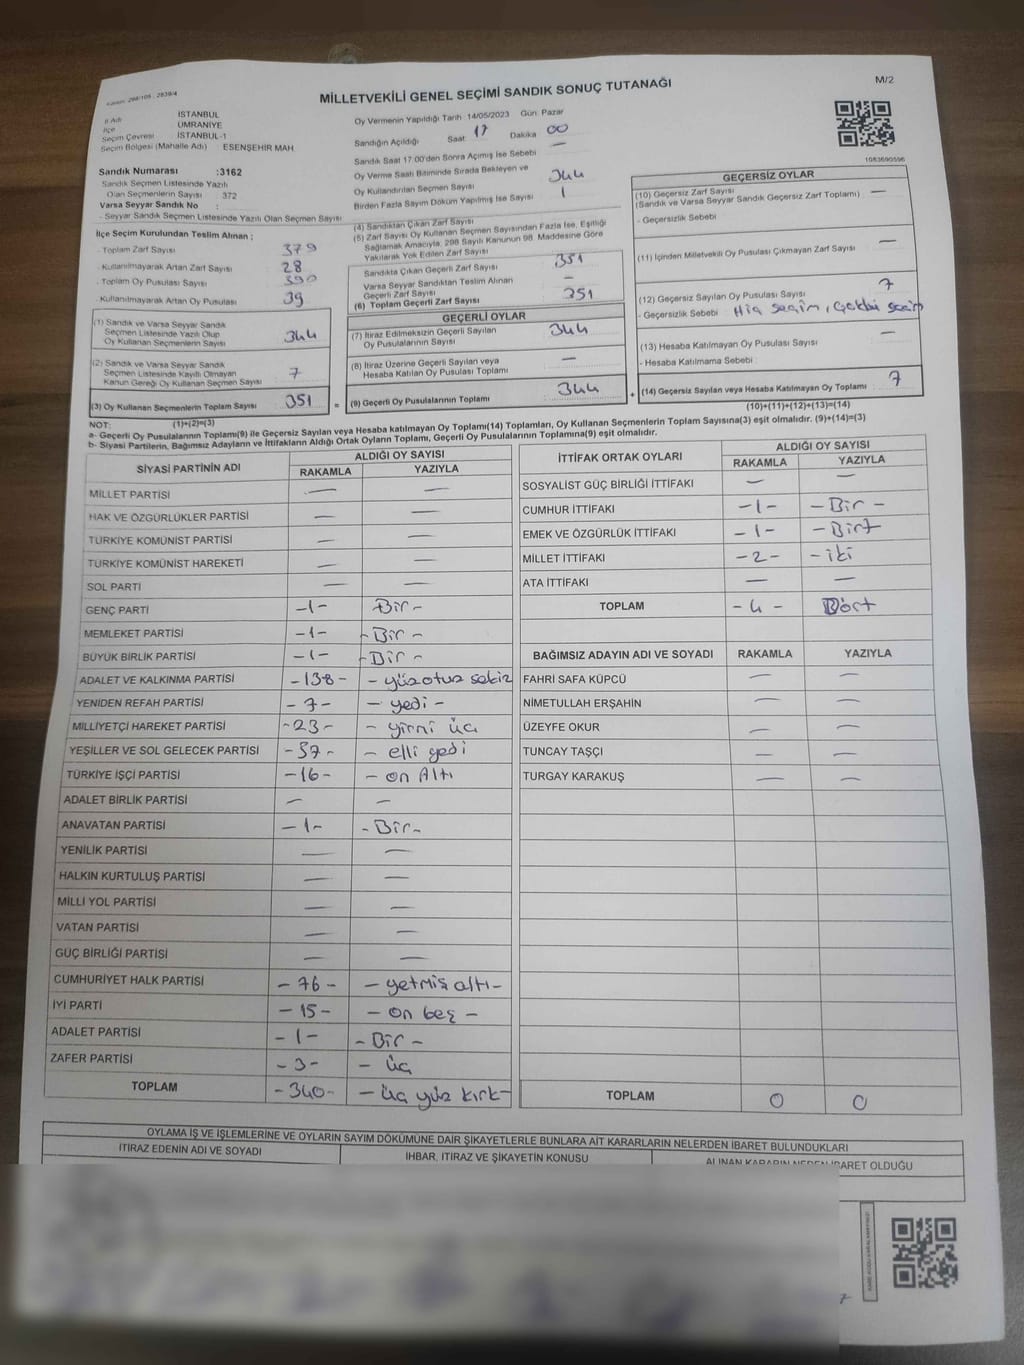 Kanun: 298/105 - 2839/4
MİLLETVEKİLİ GENEL SEÇİMİ SANDIK SONUÇ TUTANAĞI
M/2
İl Adı İSTANBUL
İlçe ÜMRANİYE
Seçim Çevresi İSTANBUL-1
Seçim Bölgesi (Mahalle Adı) ESENŞEHİR MAH.
Sandık Numarası :3162
Sandık Seçmen Listesinde Yazılı
Olan Seçmenlerin Sayısı : 372
Varsa Seyyar Sandık No :
- Seyyar Sandık Seçmen Listesinde Yazılı Olan Seçmen Sayısı
İlçe Seçim Kurulundan Teslim Alınan ;
- Toplam Zarf Sayısı 379
- Kullanılmayarak Artan Zarf Sayısı 28
- Toplam Oy Pusulası Sayısı 390
- Kullanılmayarak Artan Oy Pusulası 39
(1) Sandık ve Varsa Seyyar Sandık
Seçmen Listesinde Yazılı Olup
Oy Kullanan Seçmenlerin Sayısı 344
(2) Sandık ve Varsa Seyyar Sandık
Seçmen Listesinde Kayıtlı Olmayan
Kanun Gereği Oy Kullanan Seçmen Sayısı 7
(3) Oy Kullanan Seçmenlerin Toplam Sayısı 351 =
(1)+(2)=(3)
Oy Vermenin Yapıldığı Tarih 14/05/2023 Gün: Pazar
Sandığın Açıldığı Saat 17 Dakika 00
Sandık Saat 17:00'den Sonra Açılmış İse Sebebi —
Oy Verme Saati Bitiminde Sırada Bekleyen ve
Oy Kullandırılan Seçmen Sayısı 344
Birden Fazla Sayım Döküm Yapılmış İse Sayısı 1
(4) Sandıktan Çıkan Zarf Sayısı
(5) Zarf Sayısı Oy Kullanan Seçmen Sayısından Fazla İse, Eşitliği
Sağlamak Amacıyla, 298 Sayılı Kanunun 98. Maddesine Göre
Yakılarak Yok Edilen Zarf Sayısı
Sandıkta Çıkan Geçerli Zarf Sayısı 351
Varsa Seyyar Sandıktan Teslim Alınan
Geçerli Zarf Sayısı —
(6) Toplam Geçerli Zarf Sayısı 351
GEÇERLİ OYLAR
(7) İtiraz Edilmeksizin Geçerli Sayılan
Oy Pusulalarının Sayısı 344
(8) İtiraz Üzerine Geçerli Sayılan veya
Hesaba Katılan Oy Pusulası Toplamı —
(9) Geçerli Oy Pusulalarının Toplamı 344 +
1083690596
GEÇERSİZ OYLAR
(10) Geçersiz Zarf Sayısı —
(Sandık ve Varsa Seyyar Sandık Geçersiz Zarf Toplamı)
- Geçersizlik Sebebi
(11) İçinden Milletvekili Oy Pusulası Çıkmayan Zarf Sayısı —
(12) Geçersiz Sayılan Oy Pusulası Sayısı 7
- Geçersizlik Sebebi
(13) Hesaba Katılmayan Oy Pusulası Sayısı —
- Hesaba Katılmama Sebebi
(14) Geçersiz Sayılan veya Hesaba Katılmayan Oy Toplamı 7
(10)+(11)+(12)+(13)=(14)
NOT:
a- Geçerli Oy Pusulalarının Toplamı(9) ile Geçersiz Sayılan veya Hesaba katılmayan Oy Toplamı(14) Toplamları, Oy Kullanan Seçmenlerin Toplam Sayısına(3) eşit olmalıdır. (9)+(14)=(3)
b- Siyasi Partilerin, Bağımsız Adayların ve İttifakların Aldığı Ortak Oyların Toplamı, Geçerli Oy Pusulalarının Toplamına(9) eşit olmalıdır.
SİYASİ PARTİNİN ADI ALDIĞI OY SAYISI
RAKAMLA YAZIYLA
MİLLET PARTİSİ — —
HAK VE ÖZGÜRLÜKLER PARTİSİ — —
TÜRKİYE KOMÜNİST PARTİSİ — —
TÜRKİYE KOMÜNİST HAREKETİ — —
SOL PARTİ — —
GENÇ PARTİ -1- Bir -
MEMLEKET PARTİSİ -1- - Bir -
BÜYÜK BİRLİK PARTİSİ -1- - Bir -
ADALET VE KALKINMA PARTİSİ -138- - yüzotuz sekiz
YENİDEN REFAH PARTİSİ -7- - yedi -
MİLLİYETÇİ HAREKET PARTİSİ -23- - yirmi üç
YEŞİLLER VE SOL GELECEK PARTİSİ -57- - elli yedi
TÜRKİYE İŞÇİ PARTİSİ -16- - on Altı
ADALET BİRLİK PARTİSİ — —
ANAVATAN PARTİSİ -1- - Bir -
YENİLİK PARTİSİ — —
HALKIN KURTULUŞ PARTİSİ — —
MİLLİ YOL PARTİSİ — —
VATAN PARTİSİ — —
GÜÇ BİRLİĞİ PARTİSİ — —
CUMHURİYET HALK PARTİSİ -76- - yetmiş altı -
İYİ PARTİ -15- - on beş -
ADALET PARTİSİ -1- - Bir -
ZAFER PARTİSİ -3- - üç
TOPLAM -340- - üç yüz kırk -
İTTİFAK ORTAK OYLARI ALDIĞI OY SAYISI
RAKAMLA YAZIYLA
SOSYALİST GÜÇ BİRLİĞİ İTTİFAKI — —
CUMHUR İTTİFAKI -1- - Bir -
EMEK VE ÖZGÜRLÜK İTTİFAKI -1- - Bir
MİLLET İTTİFAKI -2- - iki
ATA İTTİFAKI — —
TOPLAM -4- Dört
BAĞIMSIZ ADAYIN ADI VE SOYADI RAKAMLA YAZIYLA
FAHRİ SAFA KÜPCÜ — —
NİMETULLAH ERŞAHİN — —
ÜZEYFE OKUR — —
TUNCAY TAŞÇI — —
TURGAY KARAKUŞ — —
TOPLAM 0 0
OYLAMA İŞ VE İŞLEMLERİNE VE OYLARIN SAYIM DÖKÜMÜNE DAİR ŞİKAYETLERLE BUNLARA AİT KARARLARIN NELERDEN İBARET BULUNDUKLARI
İTİRAZ EDENİN ADI VE SOYADI İHBAR, İTİRAZ VE ŞİKAYETİN KONUSU ALINAN KARARIN NEDEN İBARET OLDUĞU